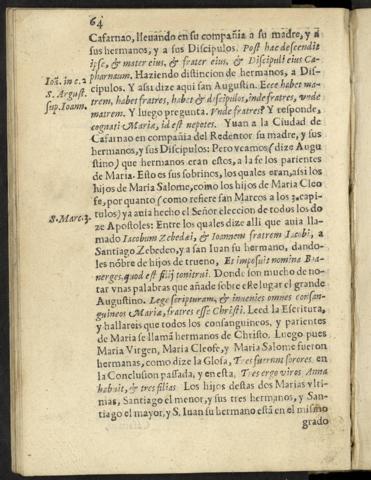 64
Cafarnao, llevando en su compañia a su madre, y a
sus hermanos, y a sus Discipulos. Post hac descendit
ipse, & mater eius, & frater eius, & Discipuli eius Ca-
Ioā. in c. 2
pharnaum. Haziendo distincion de hermanos, a Dis-
S. Argust.
cipulos. Y assi dize aqui san Augustin. Ecce habet ma-
sup. Ioann.
trem, habet fratres, habet & discipulos, inde fratres, vnde
matrem. Y luego pregunta. Vnde fratres? Y responde,
cognati Mariæ, id est nepotes. Yuan a la Ciudad de
Cafarnao en compañia del Redentor su madre, y sus
hermanos, y sus Discipulos: Pero veamos (dize Augu
stino) que hermanos eran estos, a la fe los parientes
de Maria. Esto es sus sobrinos, los quales eran, assi los
hijos de Maria Salome, como los hijos de Maria Cleo
fe, por quanto (como refiere san Marcos a los 3. capi-
S. Marc. 3.
tulos) ya auia hecho el Señor eleccion de todos los do
ze Apostoles: Entre los quales dize alli que auia lla-
mado Iacobum Zebedæi, & Ioannem fratrem Iacobi, a
Santiago Zebedeo, y a san Iuan su hermano, dando-
les nōbre de hijos de trueno, Et imposuit nomina Boa-
nerges, quod est filij tonitrui. Donde son mucho de no-
tar vnas palabras que añade sobre este lugar el grande
Augustino. Lege scripturam, & inuenies omnes consan-
guineos Mariæ, fratres esse Christi. Leed la Escritura,
y hallareis que todos los consanguineos, y parientes
de Maria se llamā hermanos de Christo. Luego pues
Maria Virgen, Maria Cleofe, y Maria Salome fueron
hermanas, como dize la Glosa, Tres fuerunt sorores en
la Conclusion passada, y en esta, Tres ergo viros Anna
habuit, & tres filias. Los hijos destas dos Marias vlti-
mas, Santiago el menor, y sus tres hermanos, y San-
tiago el mayor, y S. Iuan su hermano està en el mismo
grado